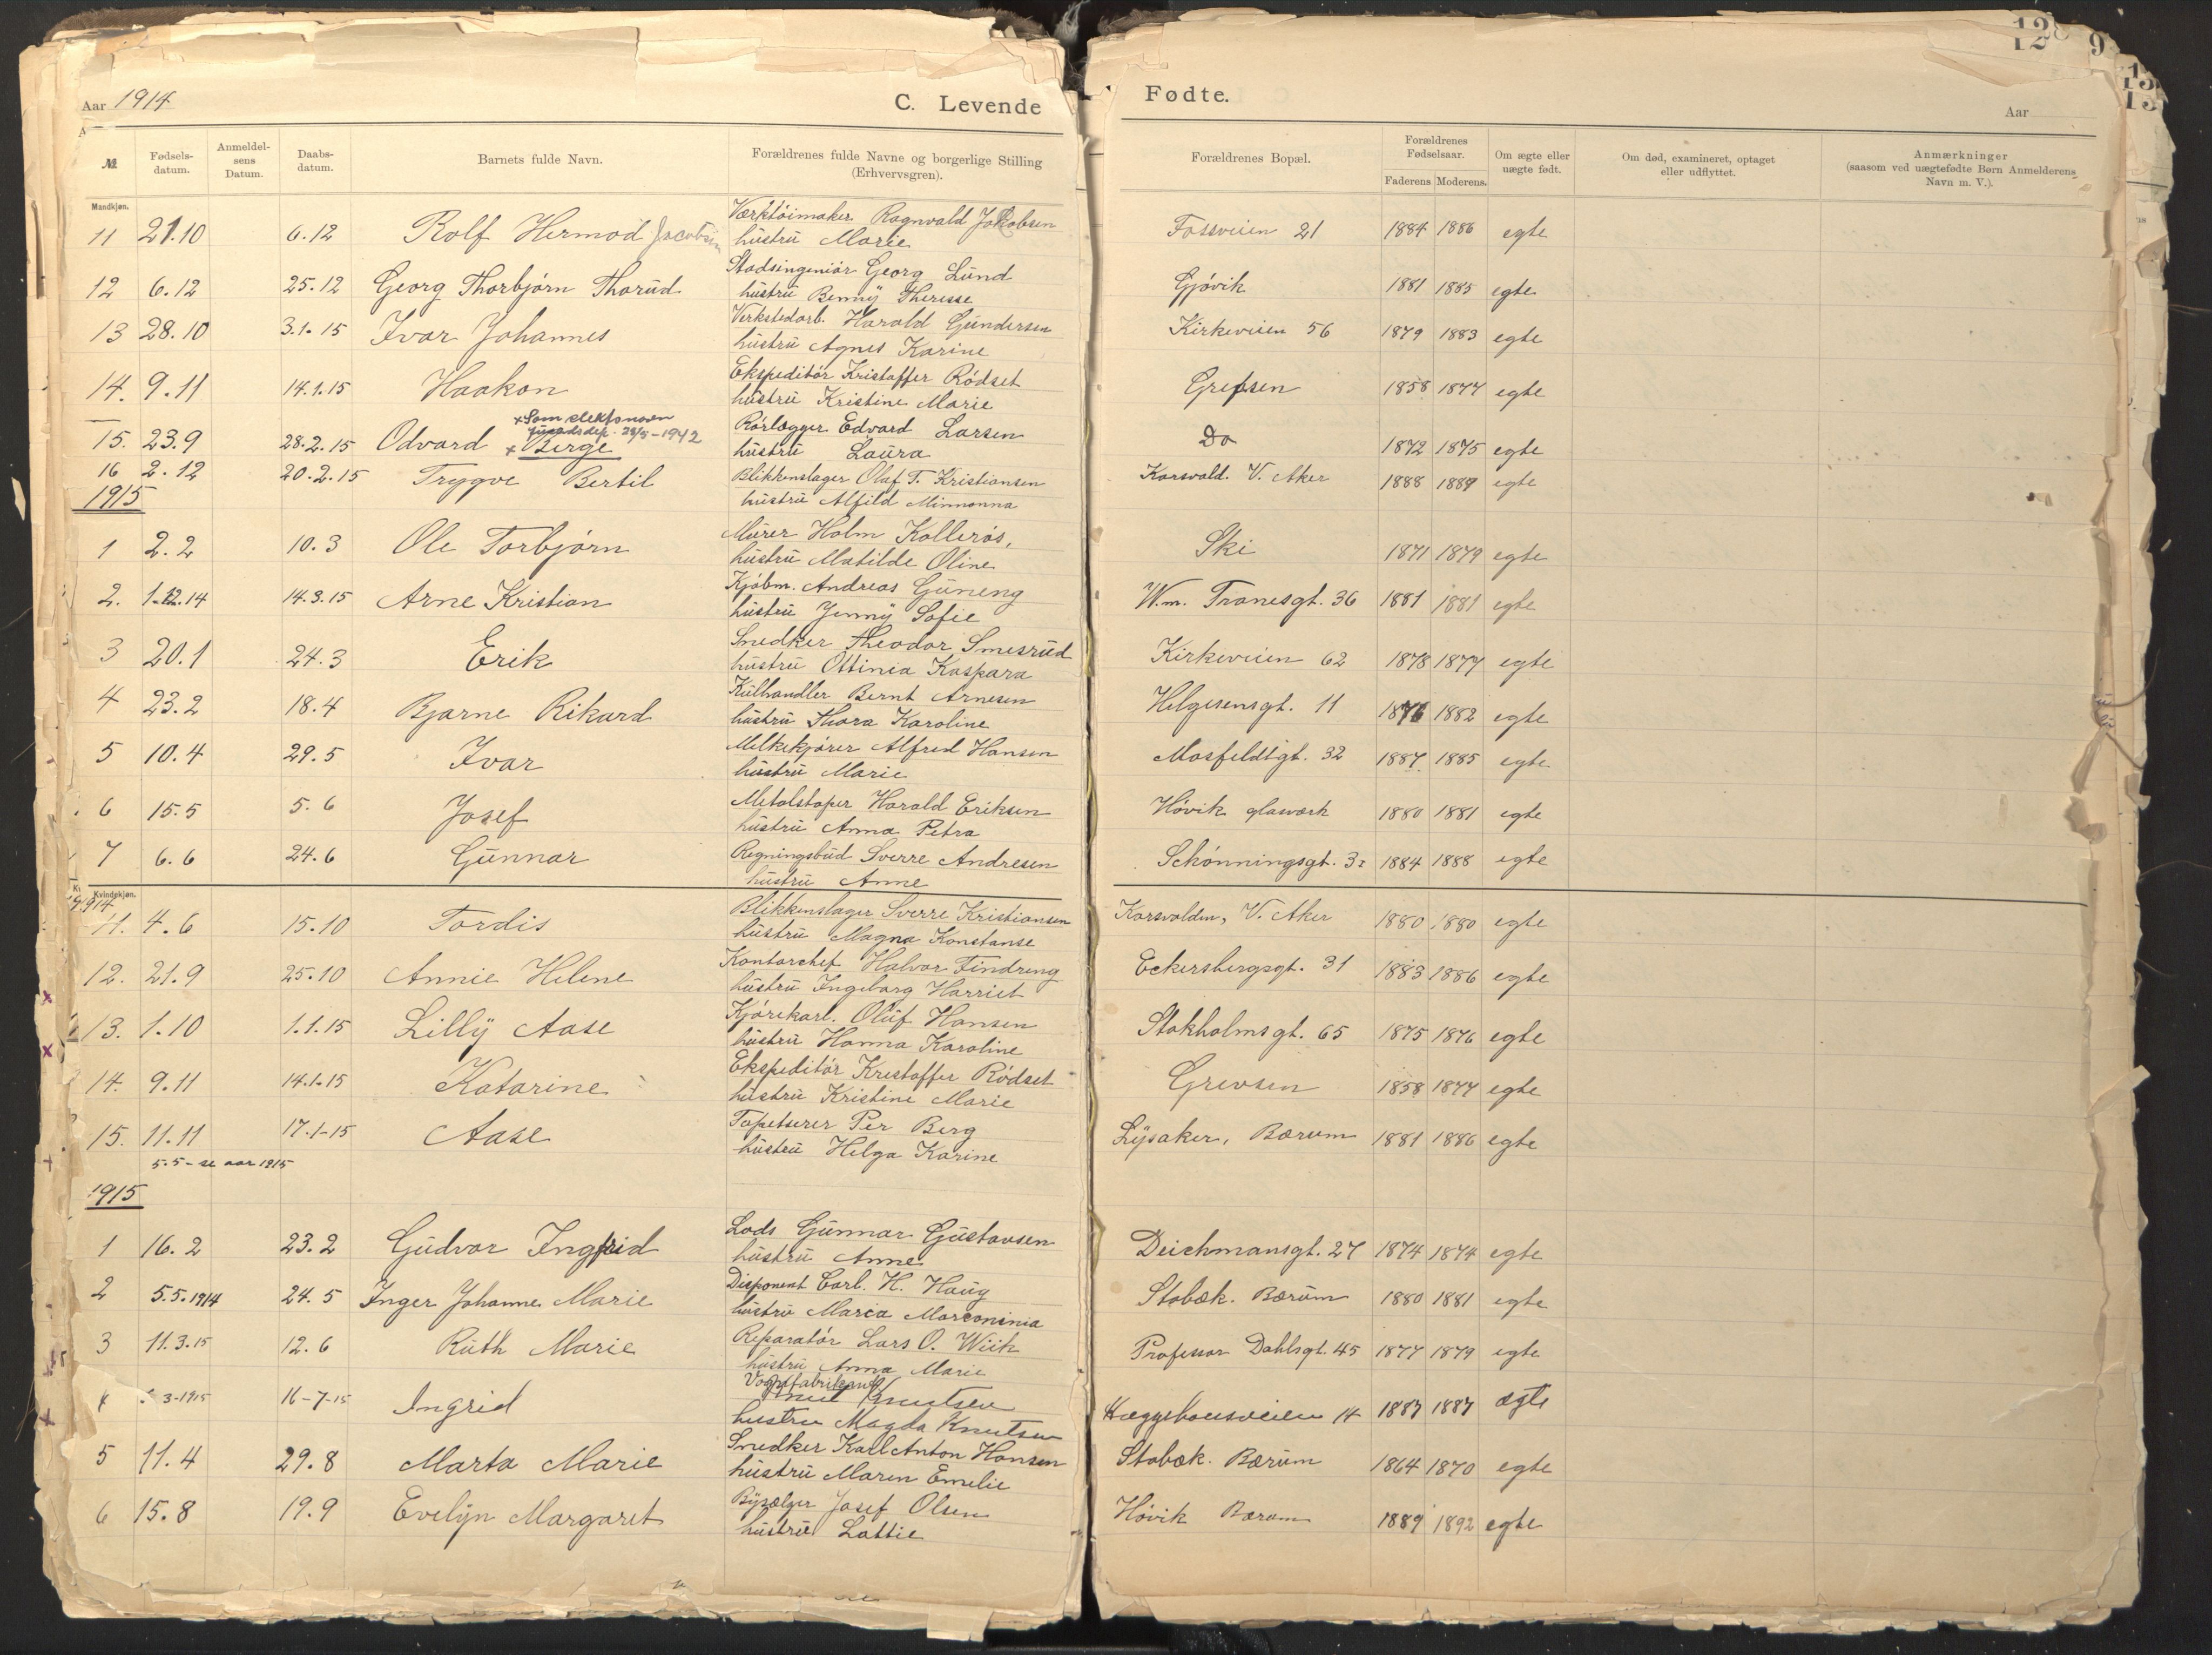 Aar 1914 C. Levende Fødte. Aar
12 9
13
№ Fødselsdatum. Anmeldelsens Datum. Daabsdatum. Barnets fulde Navn. Forældrenes fulde Navne og borgerlige Stilling (Erhvervsgren). Forældrenes Bopæl. Forældrenes Fødselsaar. Faderens Moderens. Om ægte eller uægte født. Om død, examineret, optaget eller udflyttet. Anmærkninger (saasom ved uægtefødte Børn Anmelderens Navn m. V.).
Mandkjøn.
11 21.10 6.12 Rolf Hermod Jacobsen Værktøimaker Ragnvald Jakobsen Fossveien 21 1884 1886 egte
hustru Marie
12 6.12 25.12 Georg Thorbjørn Thorud Stadsingeniør Georg Lund Gjøvik 1881 1885 egte
hustru Benny Therese
13 28.10 3.1.15 Ivar Johannes Verkstedarb. Harald Gundersen Kirkeveien 56 1879 1883 egte
hustru Agnes Karine
14. 9.11 14.1.15 Haakon Ekspeditør Kristoffer Rødset Grefsen 1858 1877 egte
hustru Kristine Marie
x Som slektsnavn
Justisdep. 28/5-1942
15. 23.9 28.2.15 Odvard x Berge Rørlægger Edvard Larsen Do 1872 1875 egte
hustru Laura
16 2.12 20.2.15 Trygve Bertil Blikkenslager Olaf T. Kristiansen Korsvold. V. Aker 1888 1889 egte
hustru Alfild Minnonna
1915
1 2.2 10.3 Ole Torbjørn Murer Holm Kollerøs, Ski 1871 1879 egte
hustru Matilde Oline
2. 1.12.14 14.3.15 Arne Kristian Kjøbm. Andreas Guneng W.m. Tranesgt. 36 1881 1881 egte
hustru Jenny Sofie
3 20.1 24.3 Erik Snedker Theodor Smesrud Kirkeveien 62 1878 1877 egte
hustru Ottinia Kaspara
4 23.2 18.4 Bjarne Rikard Kulhandler Bernt Arnesen Helgesensgt. 11 1876 1882 egte
hustru Thora Karoline
5 10.4 29.5 Ivar Melkekjører Alfred Hansen Mosfeldtgt. 32 1887 1885 egte
hustru Marie
6 15.5 5.6 Josef Metalstøper Harald Eriksen Høvik glasværk 1880 1881 egte
hustru Anna Petra
7 6.6 24.6 Gunnar Regningsbud Sverre Andresen Schønningsgt. 32 1884 1888 egte
hustru Anne
Kvindekjøn.
1914
11. 4.6 15.10 Tordis Blikkenslager Sverre Kristiansen Korsvolden, V. Aker 1880 1880 egte
hustru Magna Konstanse
12. 21.9 25.10 Annie Helene Kontorchef Halvor Findreng Eckersbergsgt. 31 1883 1886 egte
hustru Ingeborg Harriet
13. 1.10 1.1.15 Lilly Aase Kjørekarl. Oluf Hansen Stokholmsgt. 65 1875 1876 egte
hustru Hanna Karoline
14. 9.11 14.1.15 Katarine Ekspeditør Kristoffer Rødset Grevsen 1858 1877 egte
hustru Kristine Marie
15. 11.11 17.1-15 Aase Tapetserer Per Berg Lysaker, Bærum 1881 1886 egte
hustru Helga Karine
5.5 - se aar 1915
1915
1 16.2 23.2 Gudvor Ingfrid Lods Gunnar Gustavsen Deichmansgt. 27 1874 1874 egte
hustru Anne
2 5.5.1914 24.5 Inger Johanne Marie Disponent Carl. H. Haug Stabæk. Bærum 1880 1881 egte
hustru Maria Marconinia
3 11.3.15 12.6 Ruth Marie Reparatør Lars O. Wiik Professor Dahlsgt. 45 1877 1879 egte
hustru Anna Marie
Vognfabrikant
4 3-1915 16-7-15 Ingrid Knutsen Hæggehousveien 14 1887 1887 ægte
hustru Magda Knutsen
5 11.4 29.8 Marta Marie Snedker Karl Anton Hansen Stabæk. Bærum 1864 1870 egte
hustru Maren Emelie
6 15.8 19.9 Evelyn Margaret Bysælger Josef Olsen Høvik Bærum 1889 1892 egte
hustru Lottie